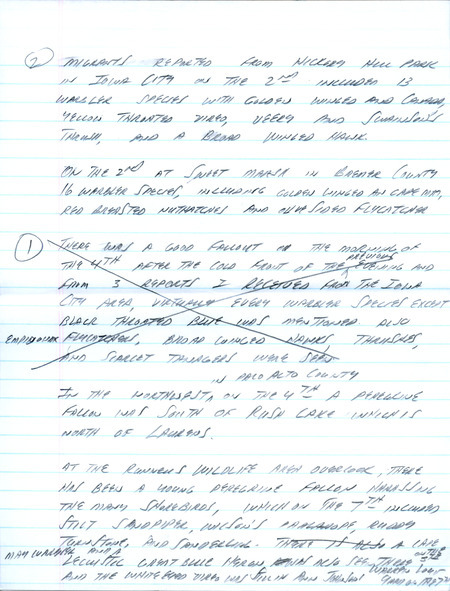 ② MIGRANTS REPORTED FROM HICKORY HILL PARK
IN IOWA CITY ON THE 2ND INCLUDED 13
WARBLER SPECIES WITH GOLDEN WINGED AND CANADA,
YELLOW THROATED VIREO, VEERY AND SWAINSON'S
THRUSH, AND A BROAD WINGED HAWK.
ON THE 2ND AT SWEET MARSH IN BREMER COUNTY
16 WARBLER SPECIES, INCLUDING GOLDEN WINGED AN CAPE MAY,
RED BREASTED NUTHATCHES AND OLIVE SIDED FLYCATCHER
① THERE WAS A GOOD FALLOUT ON THE MORNING OF
THE 4TH AFTER THE COLD FRONT OF THE PREVIOUS EVENING AND
FROM 3 REPORTS I RECEIVED FROM THE IOWA
CITY AREA, VIRTUALLY EVERY WARBLER SPECIES EXCEPT
BLACK THROATED BLUE WAS MENTIONED. ALSO
EMPIDONAX FLYCATCHERS, BROAD WINGED HAWKS, THRUSHES,
AND SCARLET TANAGERS WERE SEEN
IN PALO ALTO COUNTY
IN THE NORTHWEST, ON THE 4TH A PEREGRINE
FALCON WAS SOUTH OF RUSH LAKE WHICH IS
NORTH OF LAURENS.
AT THE RUNNELLS WILDLIFE AREA OVERLOOK, THERE
HAS BEEN A YOUNG PEREGRINE FALCON HARASSING
THE MANY SHOREBIRDS, WHICH ON THE 7TH INCLUDED
STILT SANDPIPER, WILSON'S PHALAROPE, RUDDY
TURNSTONE, AND SANDERLING. THERE IS ALSO A CAPE
MAY WARBLER AND A
LEUCISTIC GREAT BLUE HERON WAS ALSO SEEN THERE ON THE
AND THE WHITE EYED VIREO WAS STILL IN